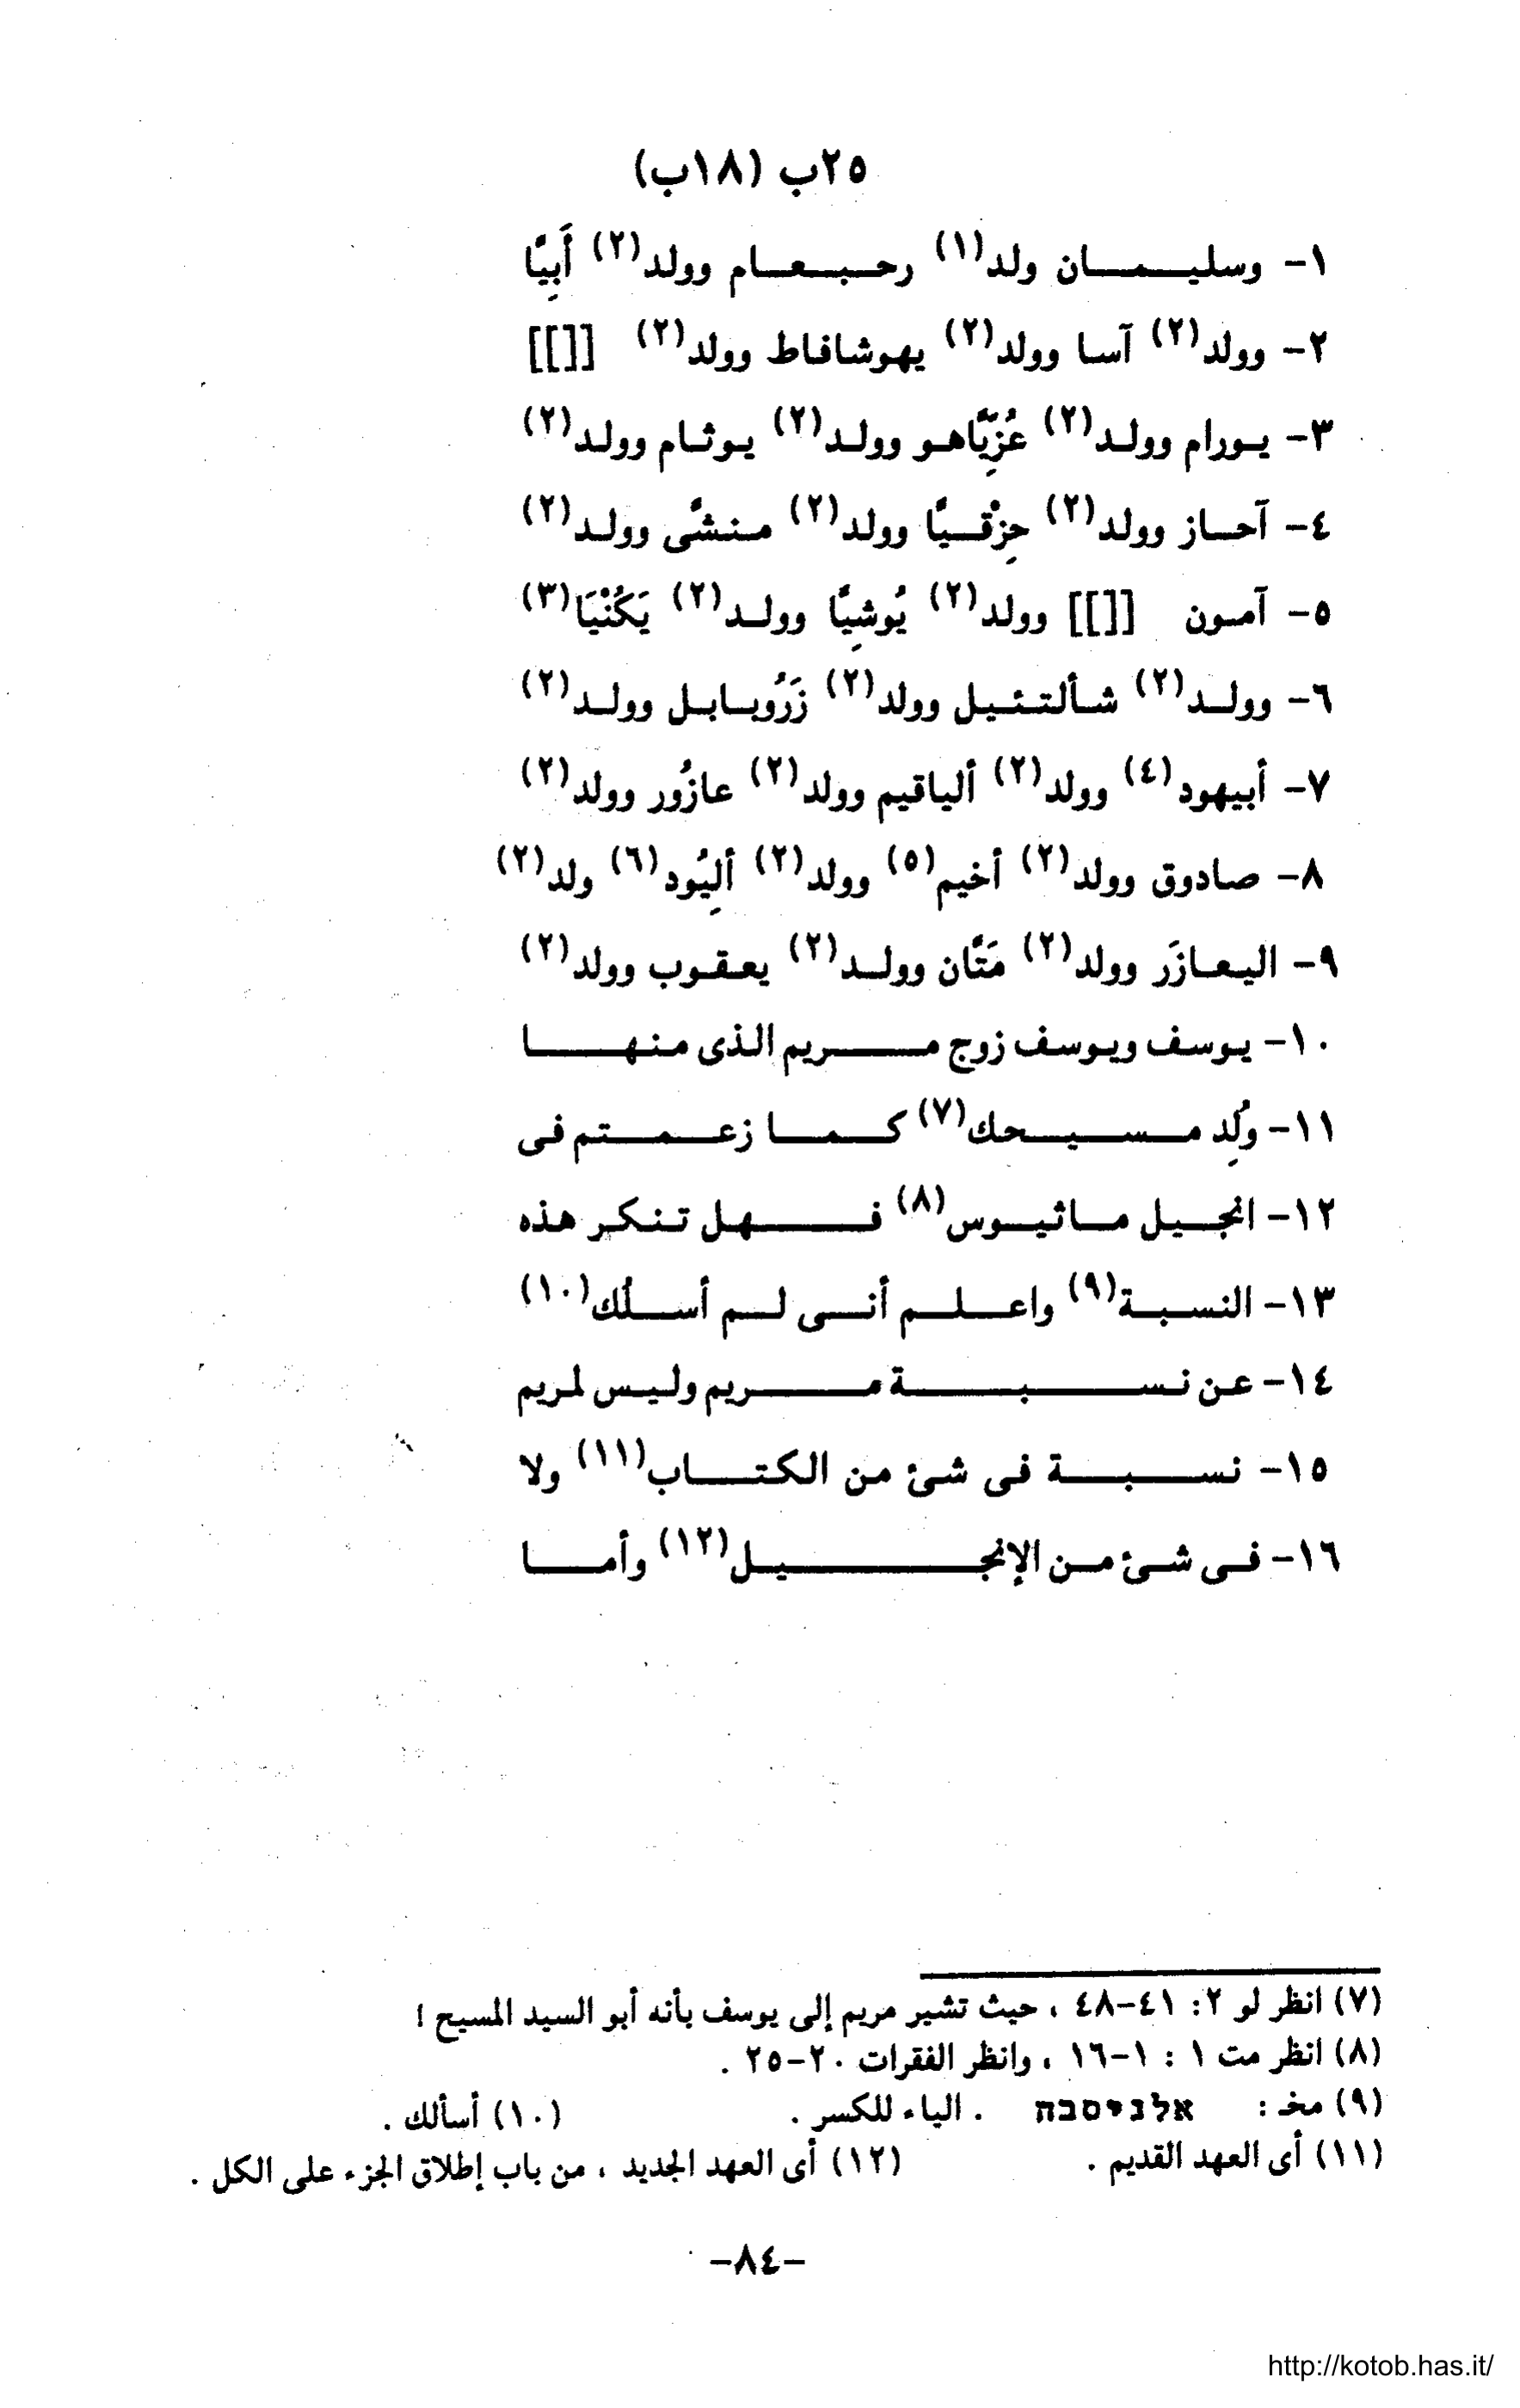 ٢٥ب (١٨ب)
١- وسليمان ولد(١) رحبعام وولد(٢) أَبِيَّا
٢- وولد(٢) آسا وولد(٢) يهوشافاط وولد(٢) [[]]
٣- يورام وولد(٢) عُزِيَّاهو وولد(٢) يوثام وولد(٢)
٤- آحاز وولد(٢) حِزْقيَّا وولد(٢) منشَّى وولد(٢)
٥- آمون [[]] وولد(٢) يُوشِيَّا وولد(٢) يَكُنْيَا(٣)
٦- وولد(٢) شألتئيل وولد(٢) زَرُوبابل وولد(٢)
٧- أبيهود(٤) وولد(٢) ألياقيم وولد(٢) عازُور وولد(٢)
٨- صادوق وولد(٢) أخيم(٥) وولد(٢) ألِيُود(٦) ولد(٢)
٩- اليعازَر وولد(٢) مَتَّان وولد(٢) يعقوب وولد(٢)
١٠- يوسف ويوسف زوج مريم الذى منها
١١- وُلِد مسيحك(٧) كما زعمتم فى
١٢- انجيل ماثيوس(٨) فهل تنكر هذه
١٣- النسبة(٩) واعلم أنى لم أسلُك(١٠)
١٤- عن نسبة مريم وليس لمريم
١٥- نسبة فى شئ من الكتاب(١١) ولا
١٦- فى شئ من الإنجيل(١٢) وأما
(٧) انظر لو ٢: ٤١-٤٨ ، حيث تشير مريم إلى يوسف بأنه أبو السيد المسيح !
(٨) انظر مت ١ : ١-١٦ ، وانظر الفقرات ٢٠-٢٥ .
(٩) مخ : אלניסבה . الياء للكسر . (١٠) أسألك .
(١١) أى العهد القديم . (١٢) أى العهد الجديد ، من باب إطلاق الجزء على الكل .
-٨٤-
http://kotob.has.it/